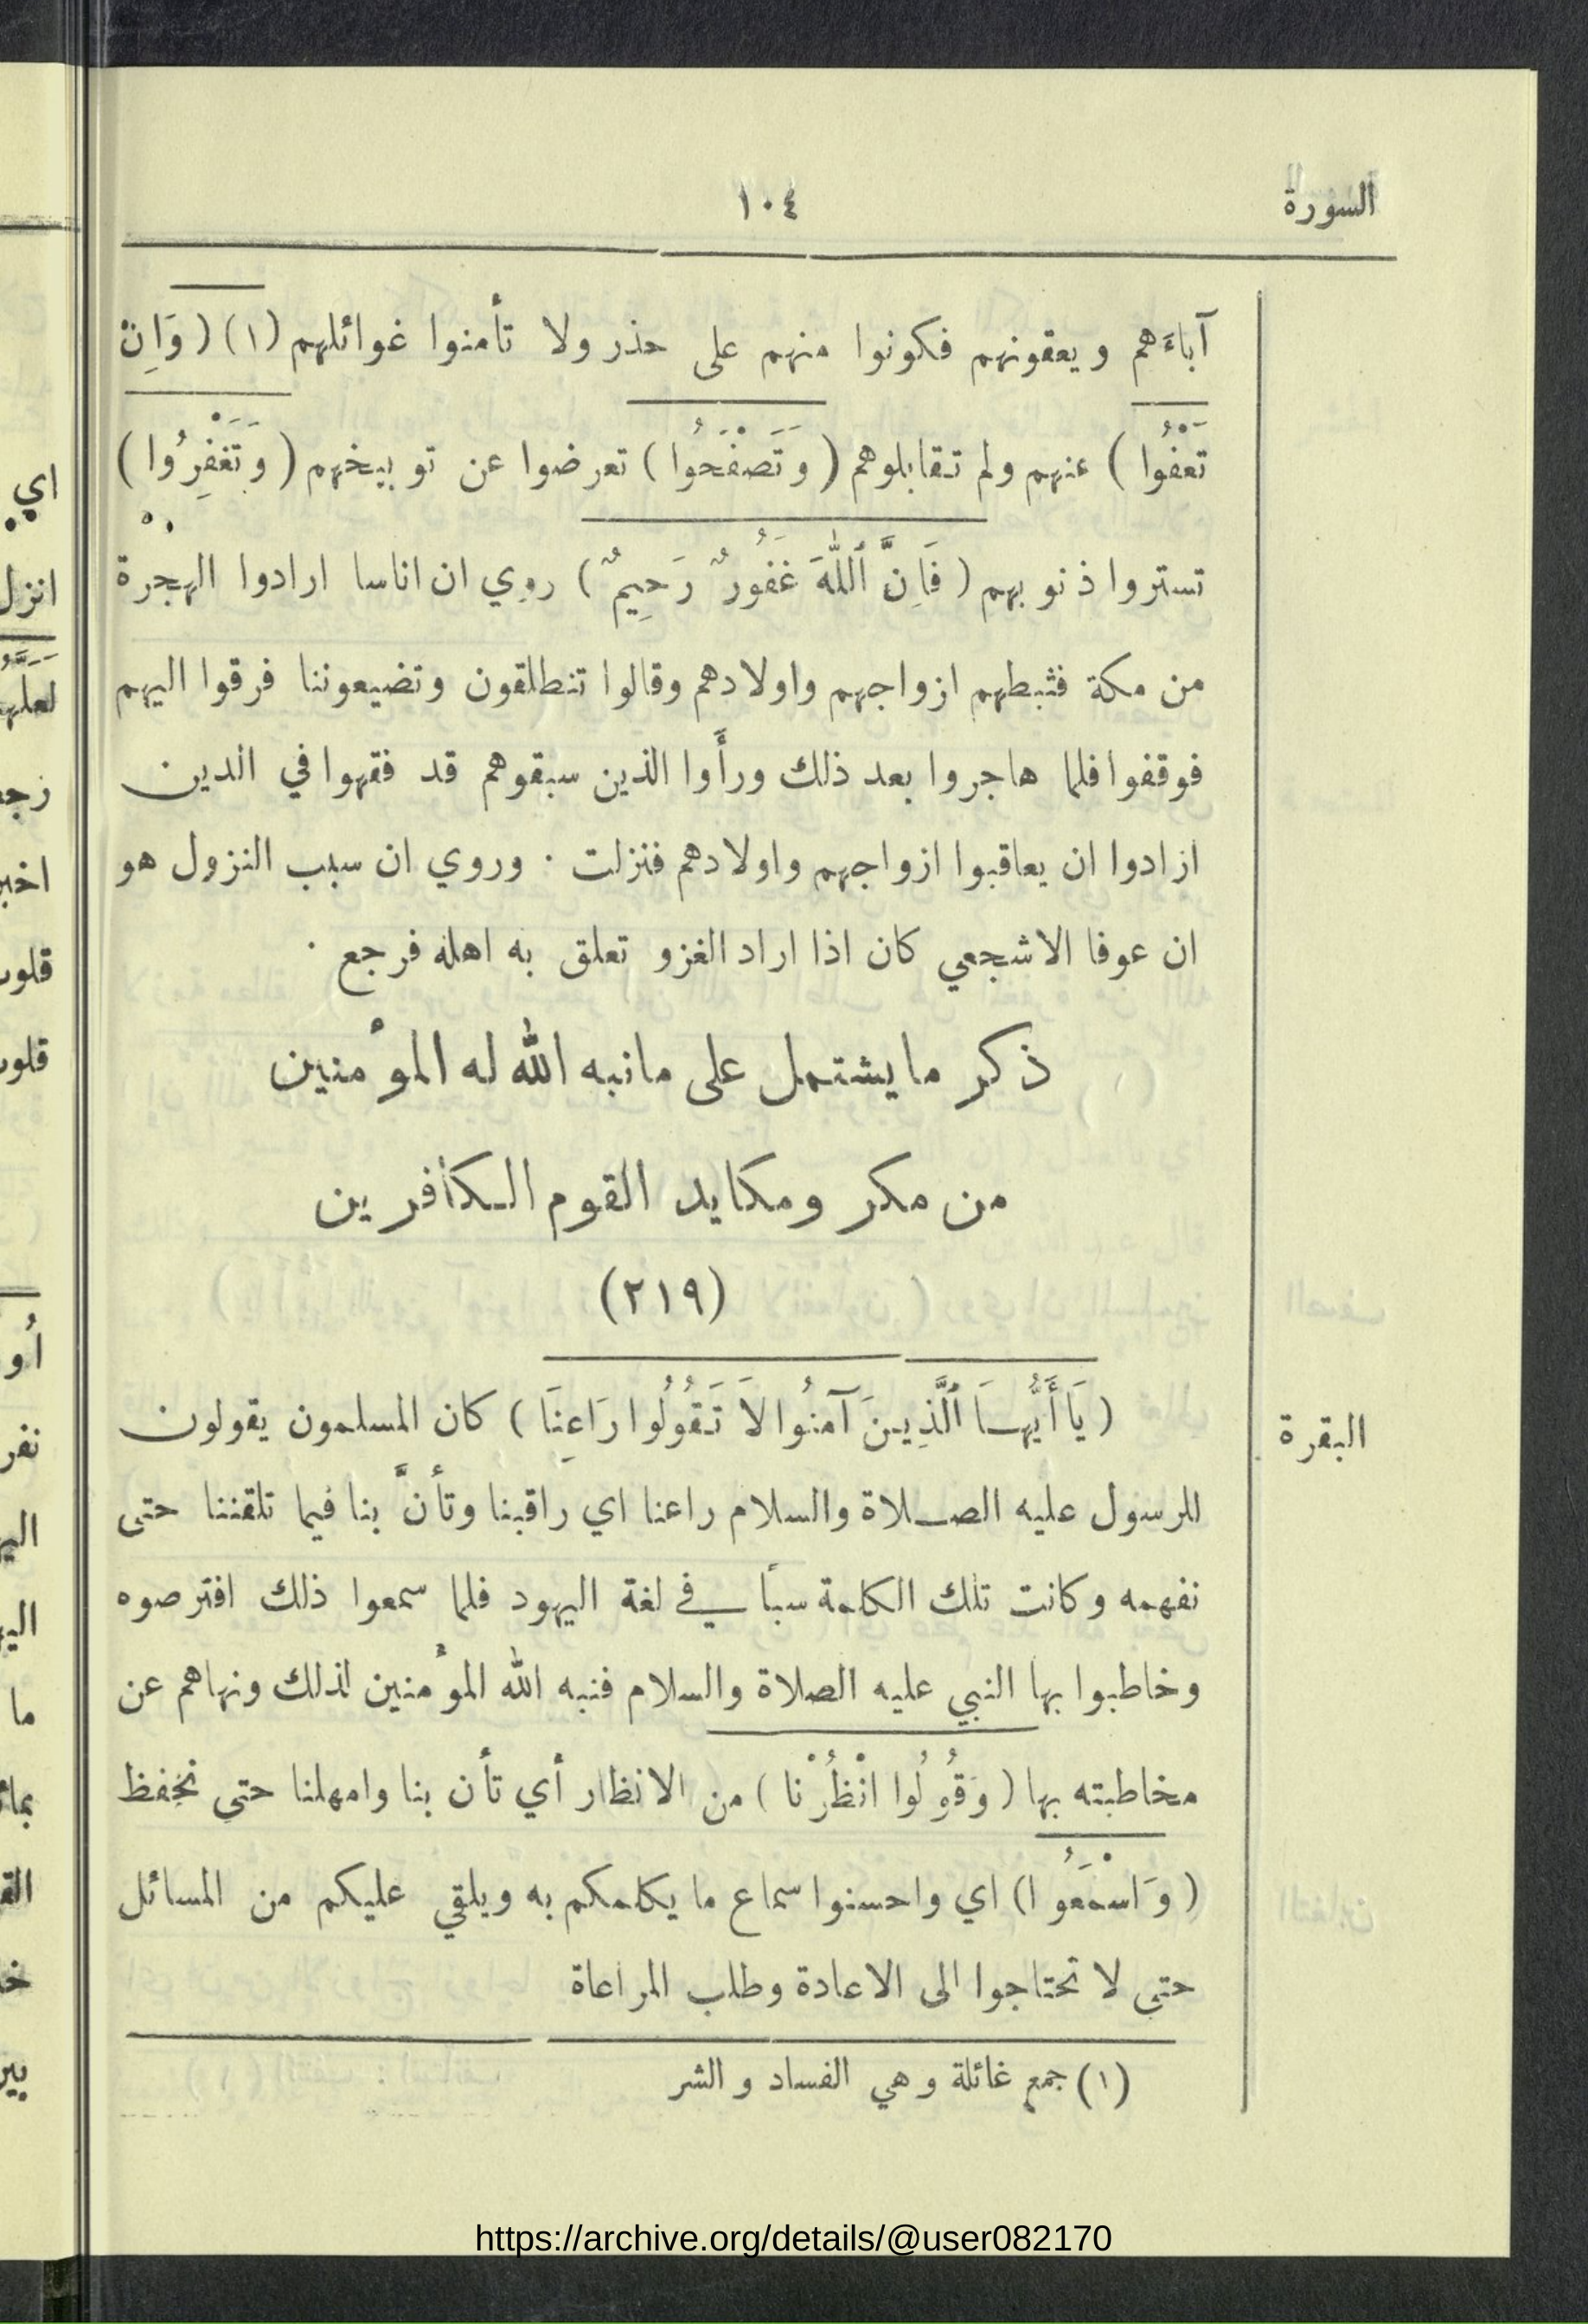 السورة
١٠٤
آباءَهم ويعقونهم فكونوا منهم على حذر ولا تأمنوا غوائلهم (١) ( وَاِنْ
تَعْفُوا ) عنهم ولم تقابلوهم ( وَتَصْفَحُوا ) تعرضوا عن توبيخهم ( وَتَغْفِرُوا )
تستروا ذنوبهم ( فَاِنَّ ٱللّٰهَ غَفُورٌ رَحِيمٌ ) روي ان اناسا ارادوا الهجرة
من مكة فثبطهم ازواجهم واولادهم وقالوا تنطلقون وتضيعوننا فرقوا اليهم
فوقفوا فلما هاجروا بعد ذلك ورأَوا الذين سبقوهم قد فقهوا في الدين
ارادوا ان يعاقبوا ازواجهم واولادهم فنزلت . وروي ان سبب النزول هو
ان عوفا الاشجعي كان اذا اراد الغزو تعلق به اهله فرجع .
ذكر ما يشتمل على ما نبه الله له المؤمنين
من مكر ومكايد القوم الكافرين
(٢١٩)
البقرة
( يَا أَيُّهَا ٱلَّذِينَ آمَنُوا لاَ تَقُولُوا رَاعِنَا ) كان المسلمون يقولون
للرسول عليه الصلاة والسلام راعنا اي راقبنا وتأنَّ بنا فيما تلقننا حتى
نفهمه وكانت تلك الكلمة سباً في لغة اليهود فلما سمعوا ذلك افترصوه
وخاطبوا بها النبي عليه الصلاة والسلام فنبه الله المؤمنين لذلك ونهاهم عن
مخاطبته بها ( وَقُولُوا انْظُرْنا ) من الانظار أي تأن بنا وامهلنا حتى نحفظ
( وَاسْمَعُوا ) اي واحسنوا سماع ما يكلمكم به ويلقي عليكم من المسائل
حتى لا تحتاجوا الى الاعادة وطلب المراعاة
(١) جمع غائلة وهي الفساد والشر
https://archive.org/details/@user082170